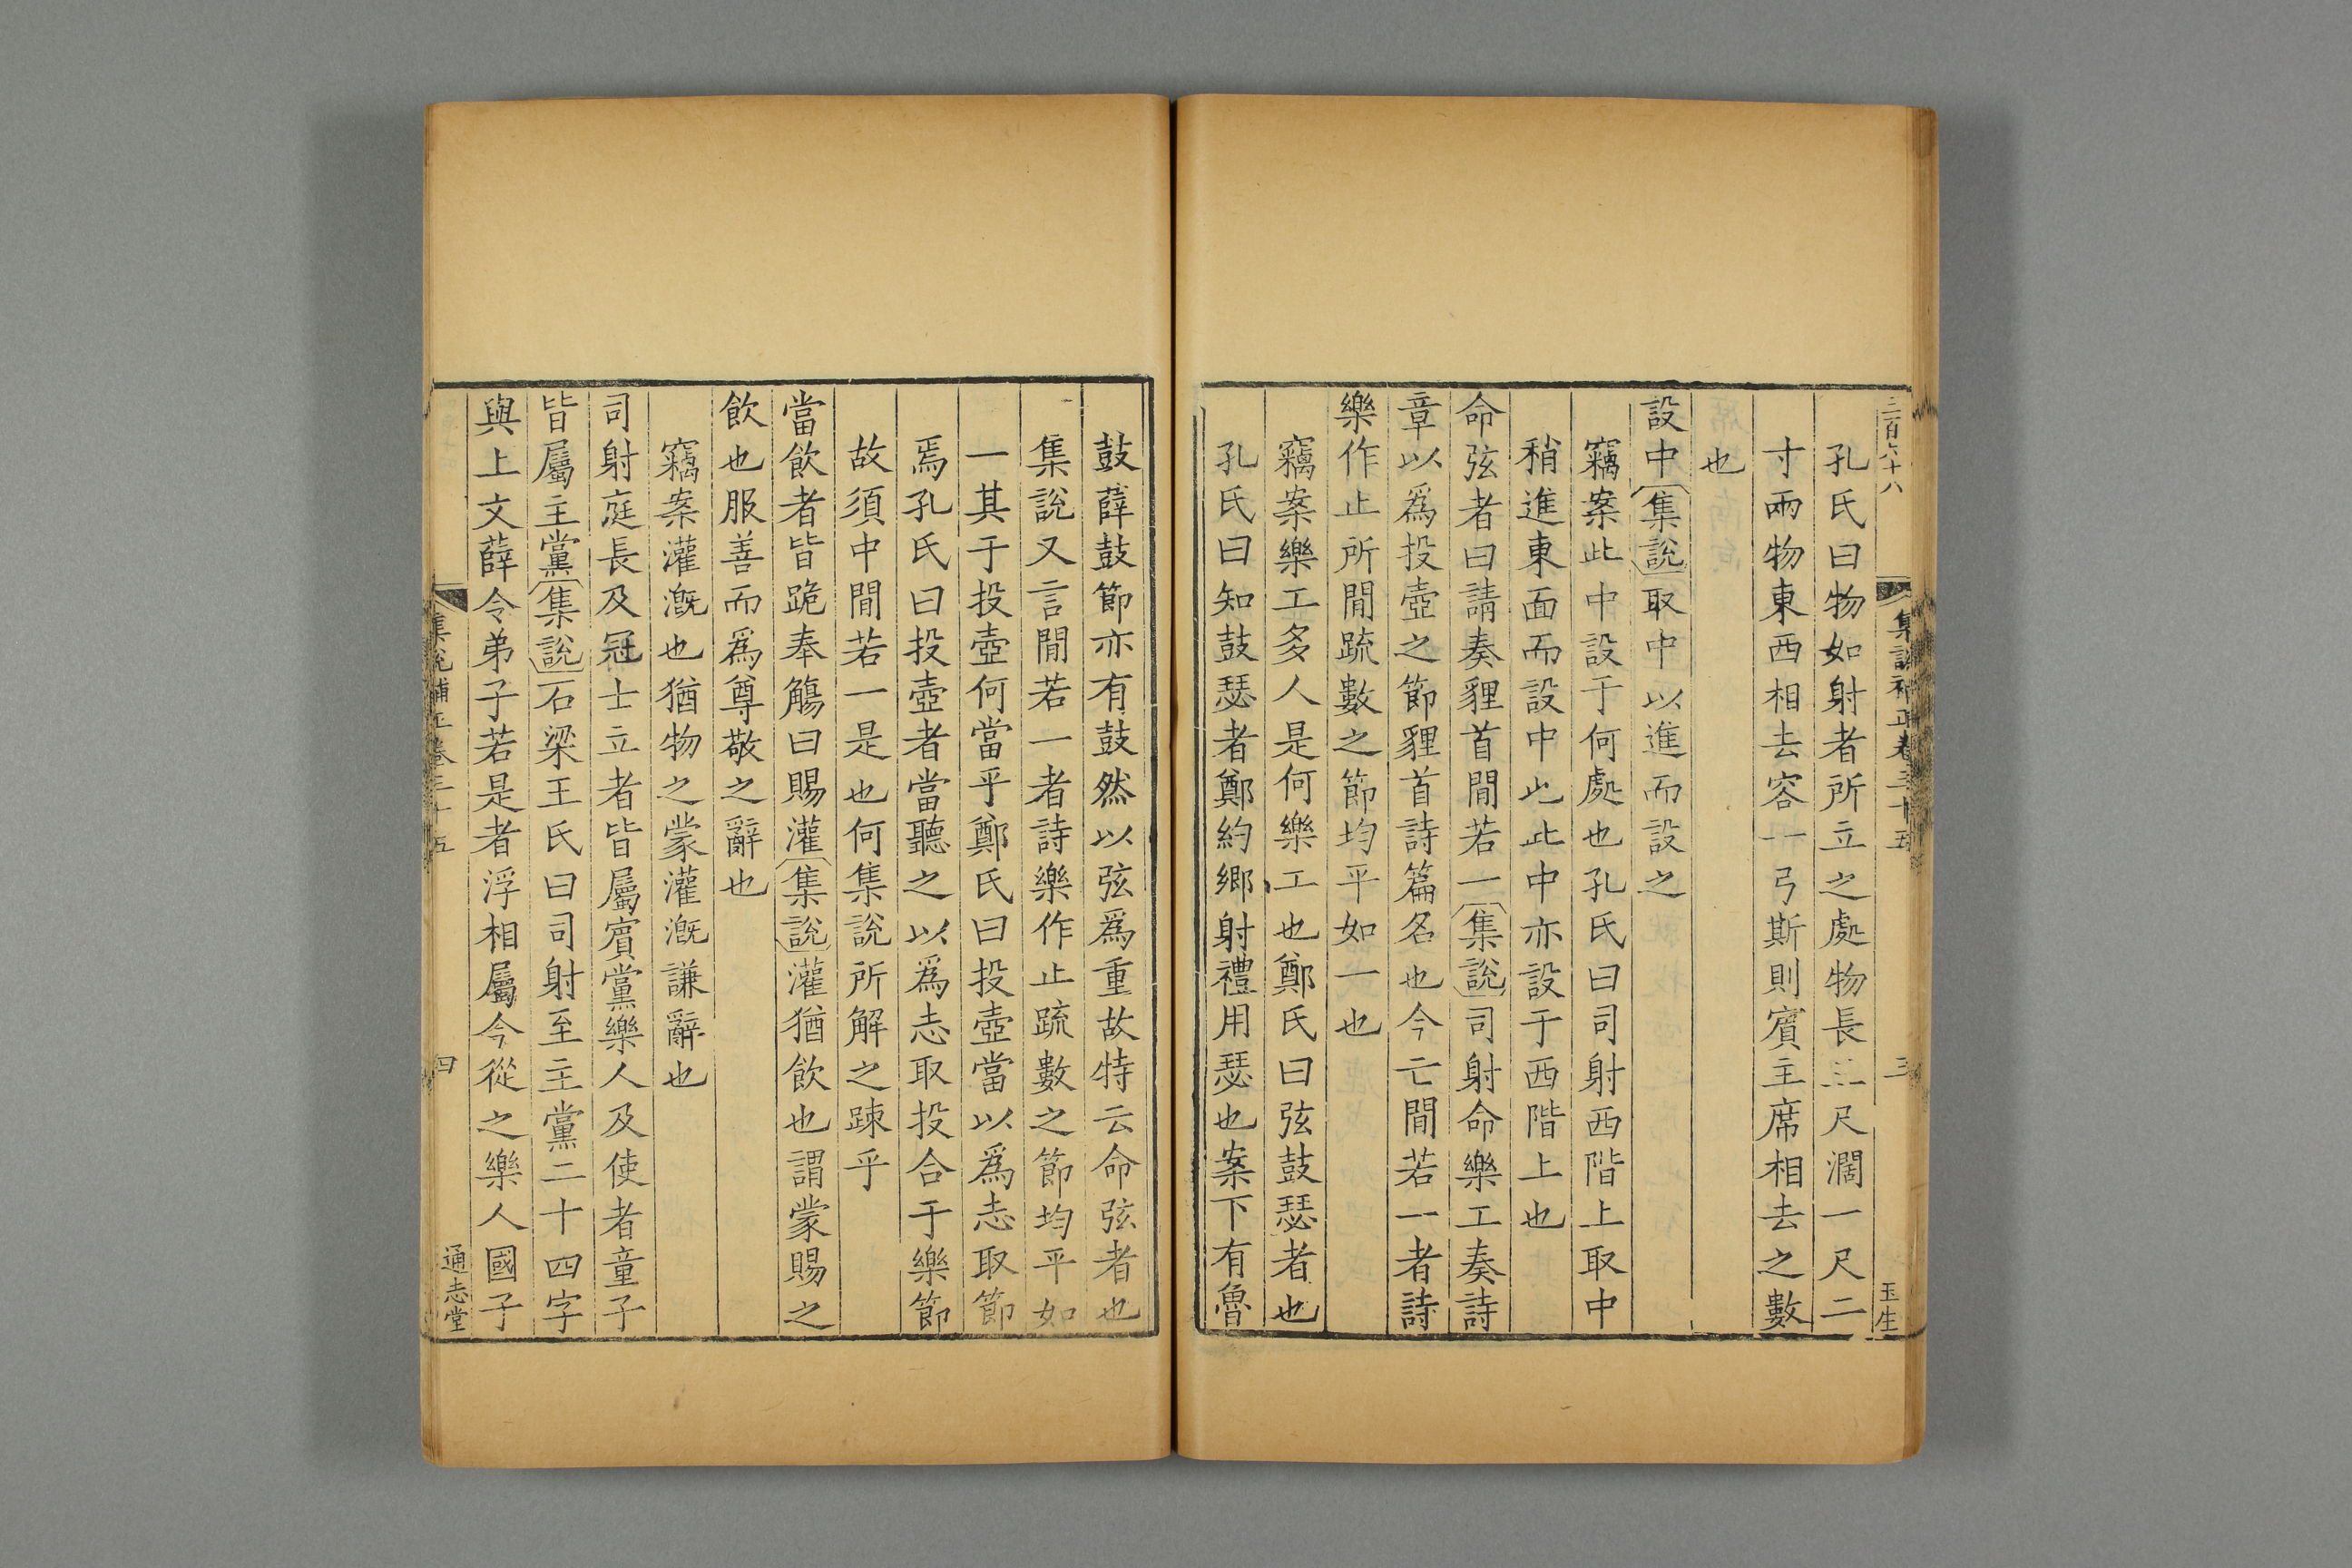 三百六十八
集說補正卷三十五
三
玉生
孔氏曰物如射者所立之處物長三尺濶一尺二
寸兩物東西相去容一弓斯則賓主席相去之數
也
設中集說取中以進而設之
竊案此中設于何處也孔氏曰司射西階上取中
稍進東面而設中此此中亦設于西階上也
命弦者曰請奏貍首閒若一集說司射命樂工奏詩
章以爲投壺之節貍首詩篇名也今亡閒若一者詩
樂作止所閒䟽數之節均平如一也
竊案樂工多人是何樂工也鄭氏曰弦鼓瑟者也
孔氏曰知鼓瑟者鄭約鄉射禮用瑟也案下有魯
鼓薛鼓節亦有鼓然以弦爲重故特云命弦者也
集說又言閒若一者詩樂作止䟽數之節均平如
一其于投壺何當乎鄭氏曰投壺當以爲志取節
焉孔氏曰投壺者當聽之以爲志取投合于樂節
故須中閒若一是也何集說所解之踈乎
當飲者皆跪奉觴曰賜灌集說灌猶飲也謂蒙賜之
飲也服善而爲尊敬之辭也
竊案灌漑也猶物之蒙灌漑謙辭也
司射庭長及冠士立者皆屬賓黨樂人及使者童子
皆屬主黨集說石梁王氏曰司射至主黨二十四字
與上文薛令弟子若是者浮相屬今從之樂人國子
集說補正卷三十五
四
通志堂